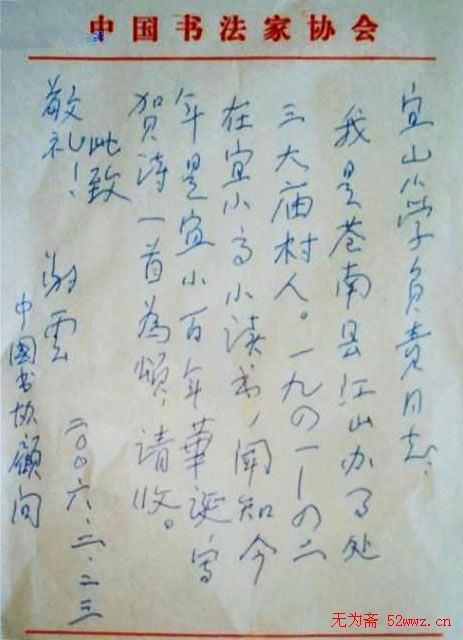 中国书法家协会
宜山小学负责同志：
我是苍南县江山办事处
三大庙村人。一九四一－四二
在宜小高小读书，闻知今
年是宜小百年华诞，写
贺诗一首为颂，请收。
此致
敬礼！
谢云
二〇〇六.二.二三
中国书协顾问
无为斋 52wwz.cn